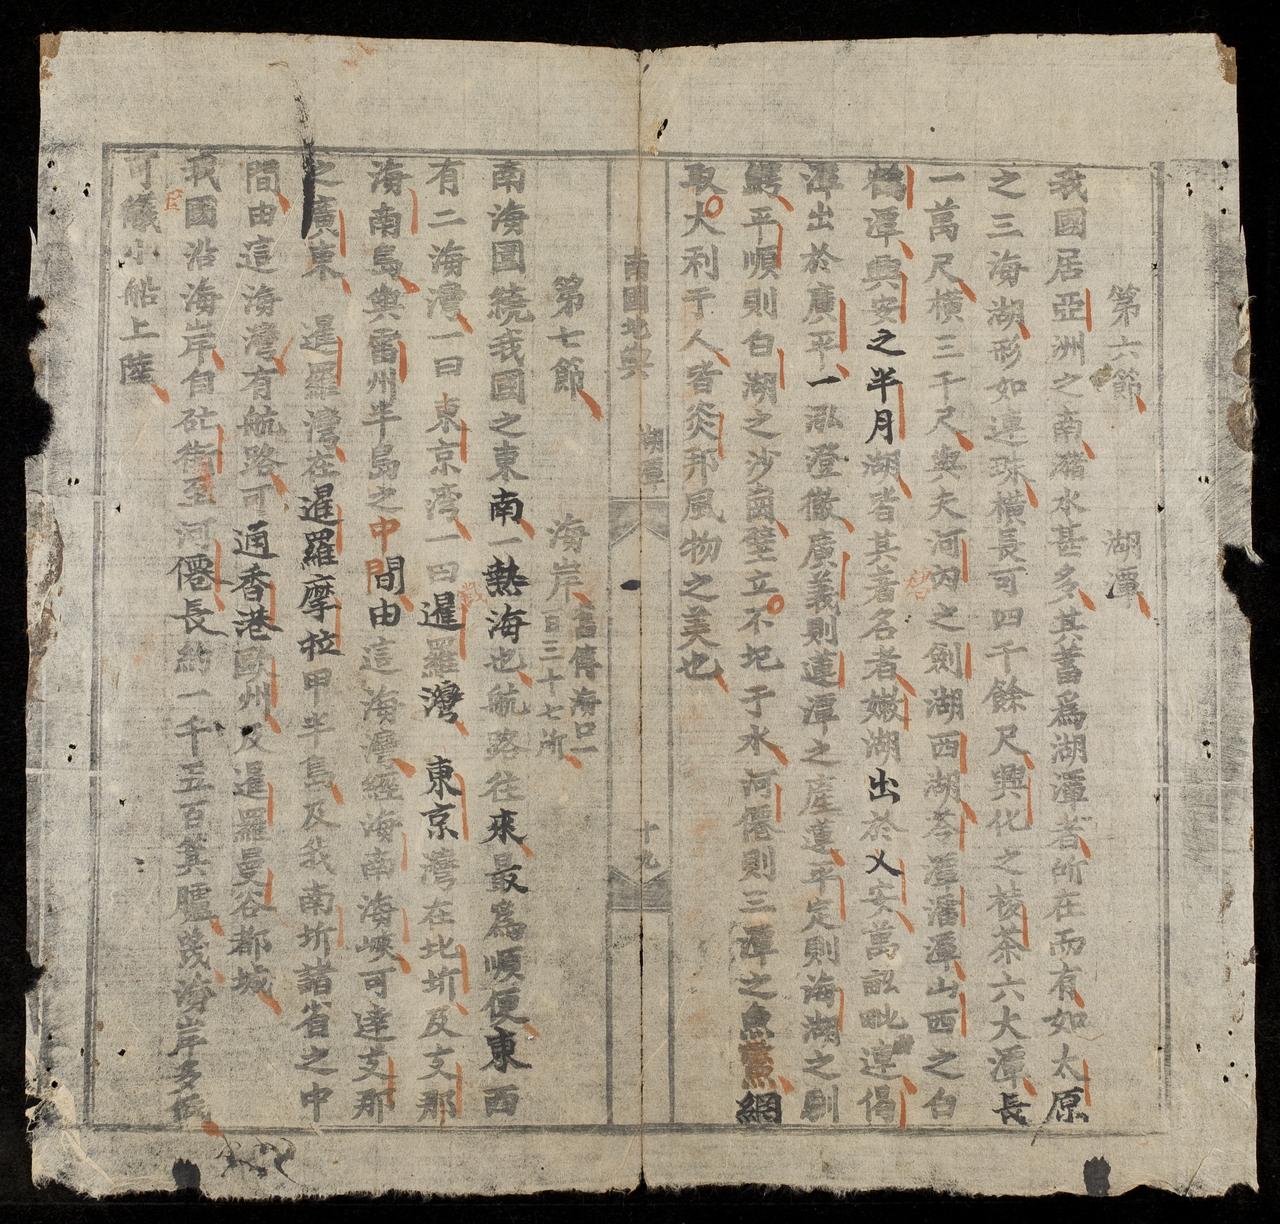 第六節 湖潭
我國居亞洲之南瀦水甚多其蓄爲湖潭者所在而有如太原
之三海湖形如連珠橫長可四千餘尺興化之核茶六大潭長
一萬尺橫三千尺與夫河內之劍湖西湖苓潭潘潭山西之白
鶴潭興安之半月湖者其著名者嫩湖出於乂安萬
潭出於廣平一泓澄徹廣義則蓮潭之產蓮平定則海湖之
鱷平順則白湖之沙齒壁立不圮于水河僊則三潭之魚䲔網
取大利于人者炎邦風物之美也
南國地輿 湖潭 十九
第七節 海岸 舊傳海口一
百三十七所
南海圍繞我國之東南一熱海也航路往來最爲順便東西
有二海灣一曰東京灣一曰暹羅灣 東京灣在北圻及支那
海南島與雷州半島之中間由這海灣經海南海峽可達支那
之廣東 暹羅灣在暹羅摩拉甲半島及我南圻諸省之中
間由這海灣有航路可通香港歐州及暹羅曼谷都城
我國沿海岸自砿街至河僊長約一千五百箕臚幾海岸多低
可艤小船上陸